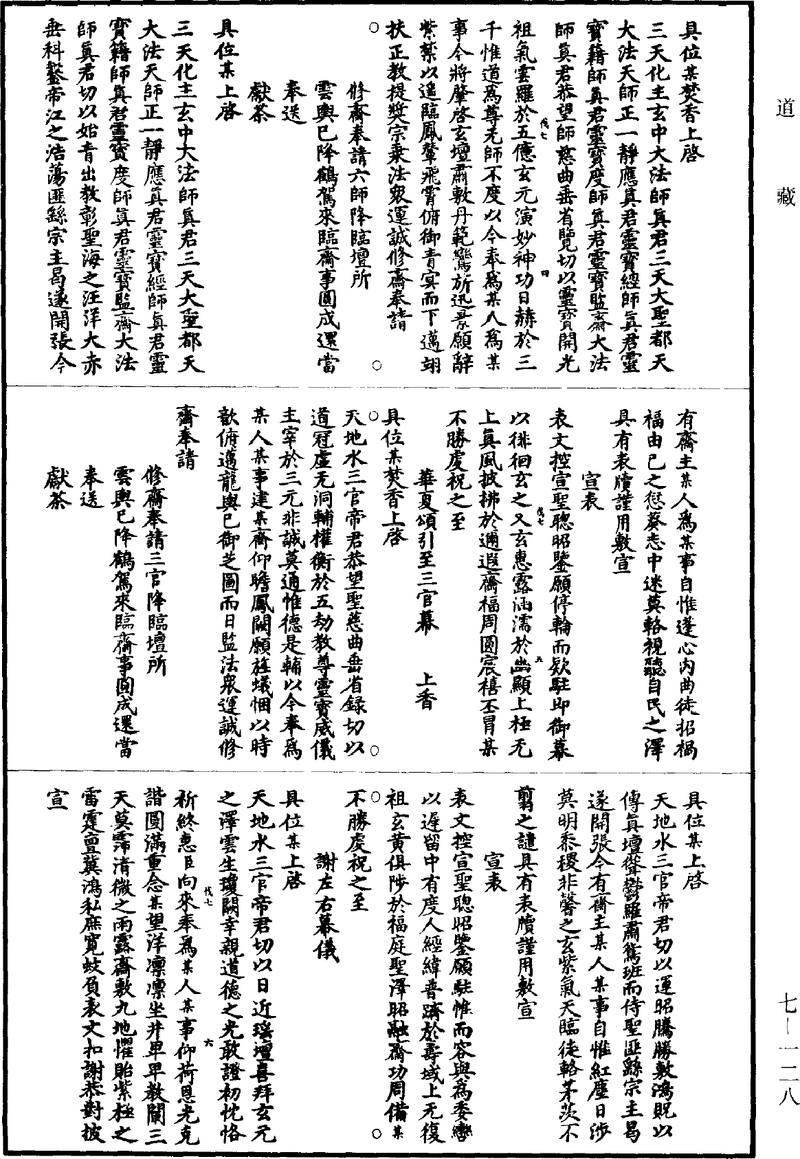 道藏
具位某焚香上啓
三天化主玄中大法師真君三天大聖都天
大法天師正一靜應真君靈寶經師真君靈
寶籍師真君靈寶度師真君靈寶監齋大法
師真君恭望師慈曲垂省覽切以靈寶開光
祖氣雲羅於五億玄元演妙神功日赫於三
千惟道為尊无師不度以今奉為某人為某
事今將肇啓玄壇肅敷丹範鸞斾迅景願辭
紫禁以遙臨鳳輦飛霄俯御青冥而下邁翊
扶正教提奬宗乗法衆運誠修齋奉請
修齋奉請六師降臨壇所
雲輿已降鶴駕來臨齋事圓成還當
奉送
獻茶
具位某上啓
三天化主玄中大法師真君三天大聖都天
大法天師正一靜應真君靈寶經師真君靈
寶籍師真君靈寶度師真君靈寶監齋大法
師真君切以始青出教彰聖海之汪洋大赤
垂科鏧帝江之浩蕩匪繇宗主曷遂開張今
有齋主某人為某事自惟蓬心内曲徒招禍
福由已之愆葵志中迷莫輅視聽自民之澤
具有表牘謹用敷宣
宣表
表文控宣聖聰昭鑒願停輪而欵駐即御幕
以徘徊玄之又玄惠露涵濡於幽顯上極无
上真風披拂於邇遐齋福周圓宸禧丕冒某
不勝虔祝之至
華夏頌引至三官幕 上香
具位某焚香上啓
天地水三官帝君恭望聖慈曲垂省錄切以
道冠虛无洞輔權衡於五劫教尊靈寶威儀
主宰於三元非誠莫通惟德是輔以今奉為
某人某事建某齋仰瞻鳳闕願旌蟻悃以時
歆俯邁龍輿已御芝圖而日監法衆運誠修
齋奉請
修齋奉請三官降臨壇所
雲輿已降鶴駕來臨齋事圓成還當
奉送
獻茶
具位某上啓
天地水三官帝君切以運昭騰勝敷鴻貺以
傳真壇聳鬱羅肅鴛班而侍聖匪繇宗主曷
遂開張今有齋主某人某事自惟紅塵日涉
莫明黍稷非馨之玄紫氣天臨徒輅茅茨不
翦之譴具有表牘謹用敷宣
宣表
表文控宣聖聰昭鑒願駐帷而容與為委轡
以遲留中有度人經緯普躋於壽域上无復
祖玄黄俱陟於福庭聖澤昭融齋功周備某
不勝虔祝之至
謝左右幕儀
具位某上啓
天地水三官帝君切以日近瑤壇喜拜玄元
之澤雲生瓊闕幸親道德之光敢證初忱恪
祈終惠臣向來奉為某人某事仰荷恩光克
諧圓滿重念某望洋凛凛坐井卑卑教闡三
天莫霈清微之雨露齋敷九地懼貽紫極之
雷霆亶冀鴻私庶寬蚊負表文扣謝恭對披
宣
七-一二八